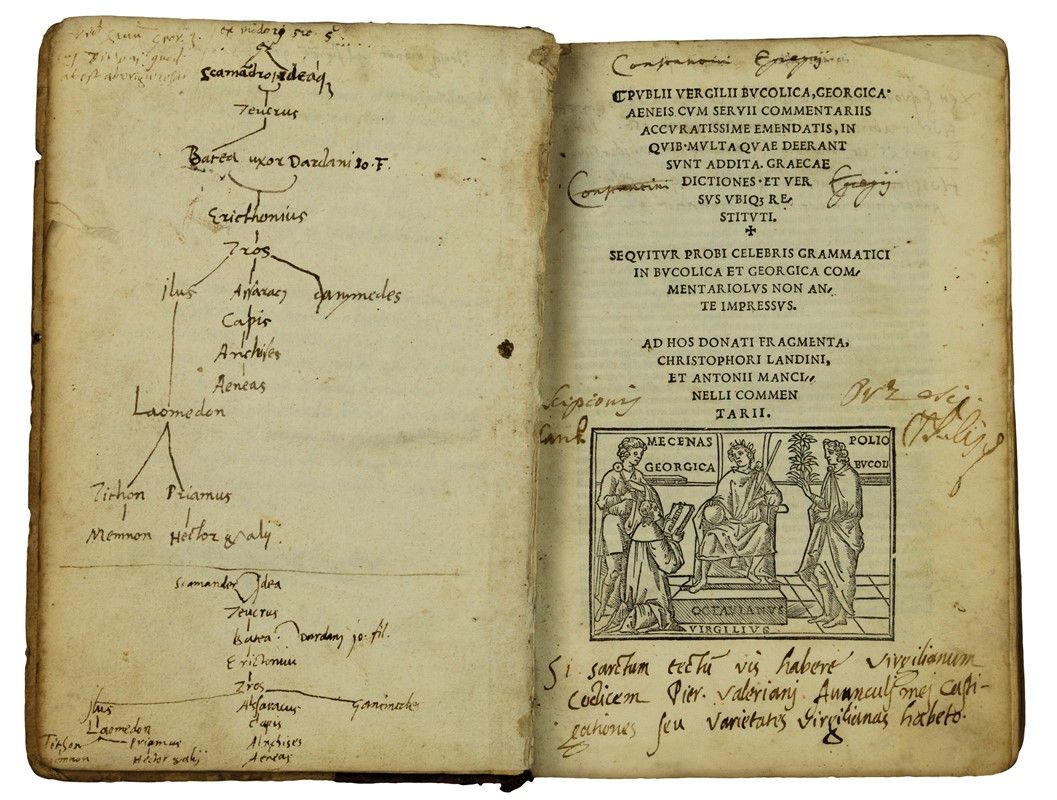 ex
Scamandro Ideaq
Teucrus
Batea uxor Dardani Io. F.
Ericthonius
Tros
Ilus Assarac9 Ganymedes
Capis
Anchises
Aeneas
Laomedon
Tithon Priamus
Memnon Hector & alij.
Scamander Idea
Teucrus
Batea. Dardanj Io. fil.
Erictoniu
Tros
Ilus Assaracus Ganimedes
Laomedon Capis
Tithon Priamus Anchises
Memnon Hector & alij Aeneas
Constantini
₵PVBLII VERGILII BVCOLICA, GEORGICA·
AENEIS CVM SERVII COMMENTARIIS
ACCVRATISSIME EMENDATIS, IN
QVIB·MVLTA QVAE DEERANT
SVNT ADDITA. GRAECAE
Constantini DICTIONES·ET VER
SVS VBIQꝫ RE/
STITVTI.
✠
SEQVITVR PROBI CELEBRIS GRAMMATICI
IN BVCOLICA ET GEORGICA COM/
MENTARIOLVS NON AN/
TE IMPRESSVS.
AD HOS DONATI FRAGMENTA,
CHRISTOPHORI LANDINI,
ET ANTONII MANCI//
NELLI COMMEN
TARII.
Scipionis
MECENAS POLIO
GEORGICA BVCOLI
OCTAVIANVS
VIRGILIVS
Si sanctum tectũ vis habere Virgilianum
Codicem Pier. Valerianj Avunculj mej Casti-
gationes seu Varietates Virgilianas habeto.